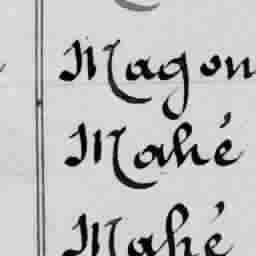 Magon
Mahé
Mahé